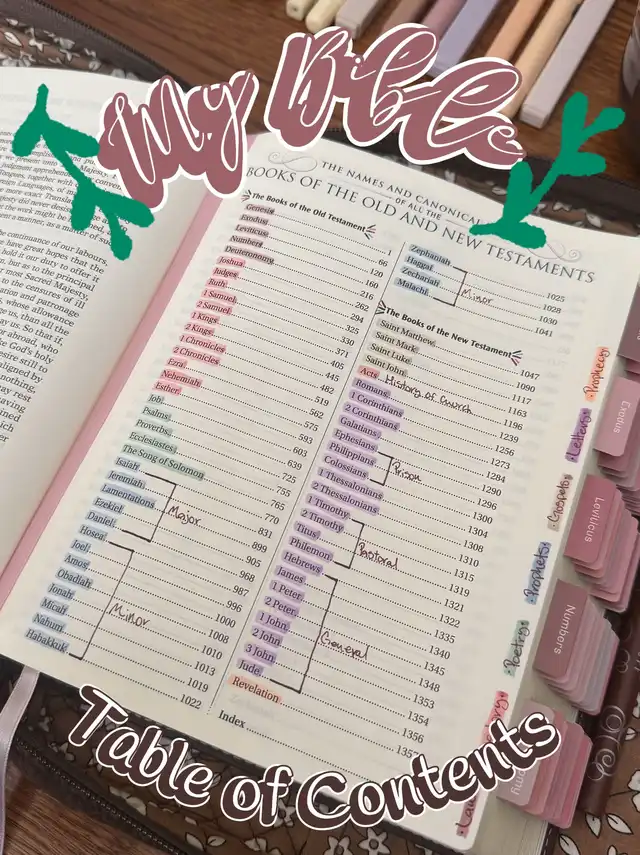 My Bible
THE NAMES AND CANONICAL
OF ALL THE
BOOKS OF THE OLD AND NEW TESTAMENTS
The Books of the Old Testament
Genesis 1
Exodus 66
Leviticus 120
Numbers 160
Deuteronomy 216
Joshua 262
Judges 294
Ruth 325
1 Samuel 330
2 Samuel 371
1 Kings 405
2 Kings 445
1 Chronicles 482
2 Chronicles 519
Ezra 562
Nehemiah 575
Esther 593
Job 603
Psalms 639
Proverbs 725
Ecclesiastes 755
The Song of Solomon 765
Isaiah 770
Jeremiah 831
Lamentations 899
Ezekiel 905
Daniel 968
Major
Hosea 987
Joel 996
Amos 1000
Obadiah 1008
Jonah 1010
Micah 1013
Nahum 1019
Habakkuk 1022
Minor
Zephaniah 1025
Haggai 1028
Zechariah 1030
Malachi 1041
Minor
The Books of the New Testament
Saint Matthew 1047
Saint Mark 1090
Saint Luke 1117
Saint John 1163
Acts History of church 1196
Romans 1239
1 Corinthians 1256
2 Corinthians 1273
Galatians 1284
Ephesians 1290
Philippians 1296
Colossians 1300
Prison
1 Thessalonians 1304
2 Thessalonians 1308
1 Timothy 1310
2 Timothy 1315
Titus 1319
Philemon 1321
Pastoral
Hebrews 1322
James 1335
1 Peter 1340
2 Peter 1345
1 John 1348
2 John 1353
3 John 1354
Jude 1356
General
Revelation 1357
Index
Prophecy
Letters
Gospels
Prophets
Poetry
Exodus
Leviticus
Numbers
Table of Contents